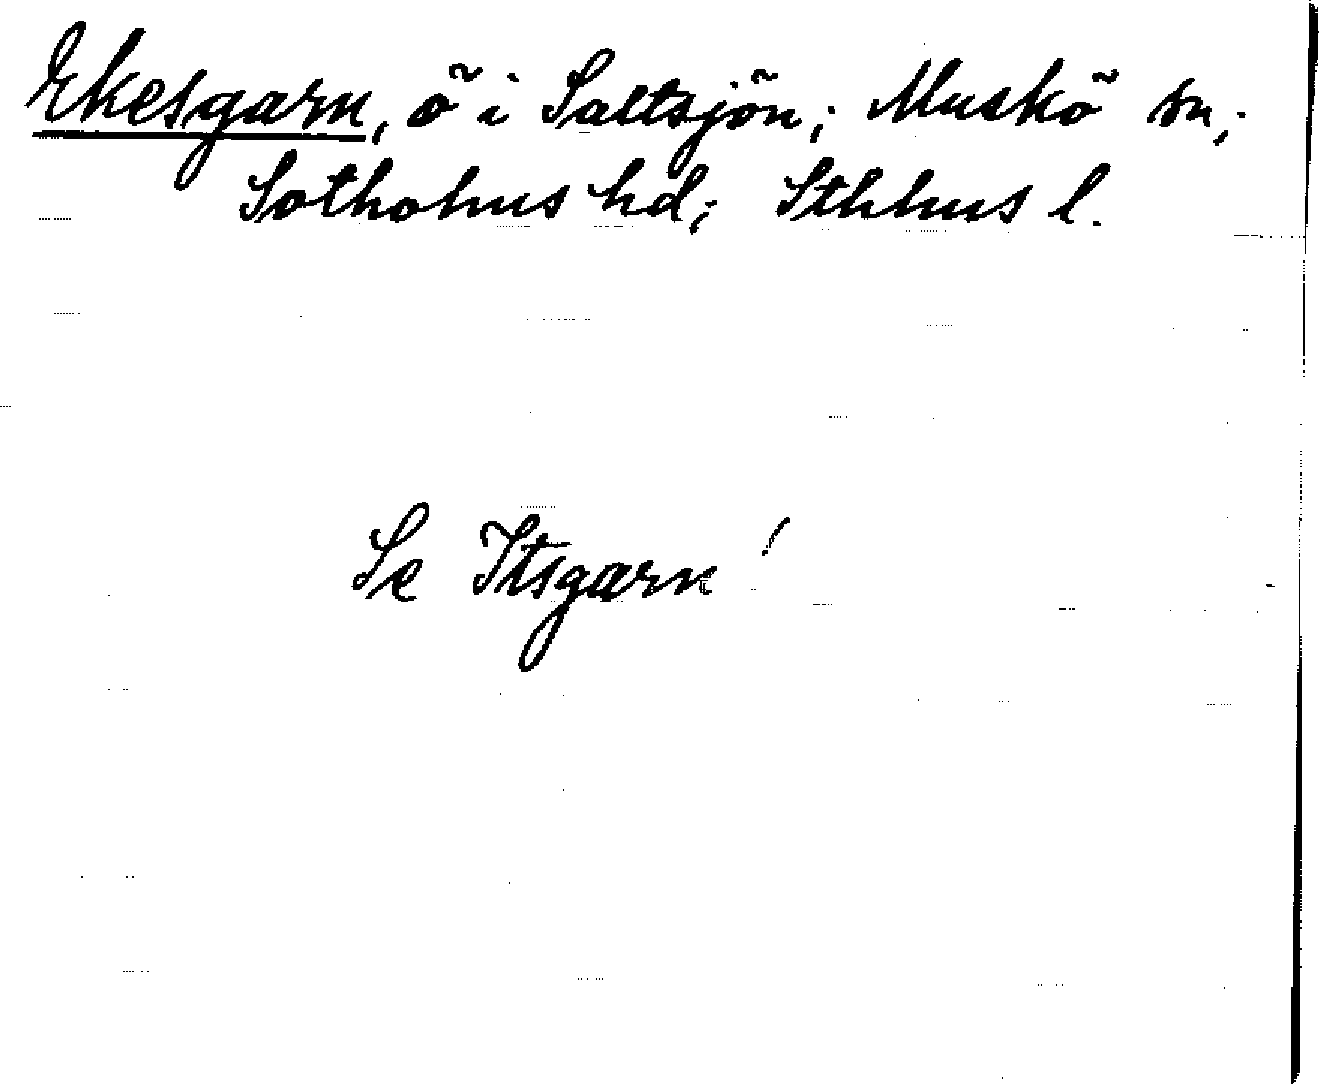 Ekesgarn, ö i Saltsjön; Muskö sn;
Sotholms hd; Sthlms l.
Se Itsgarn!